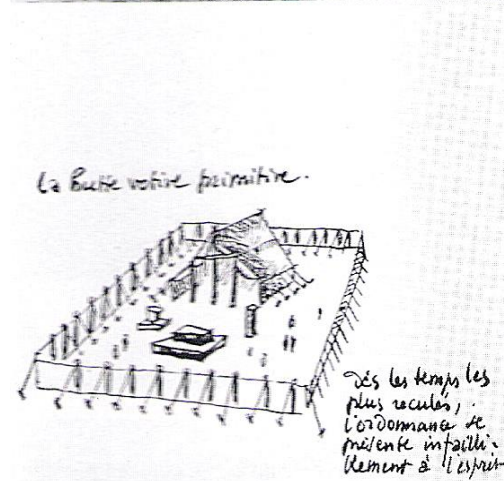 la Hutte votive primitive.
Dès les temps les
plus reculés,
l'ordonnance se
présente infailli-
blement à l'esprit